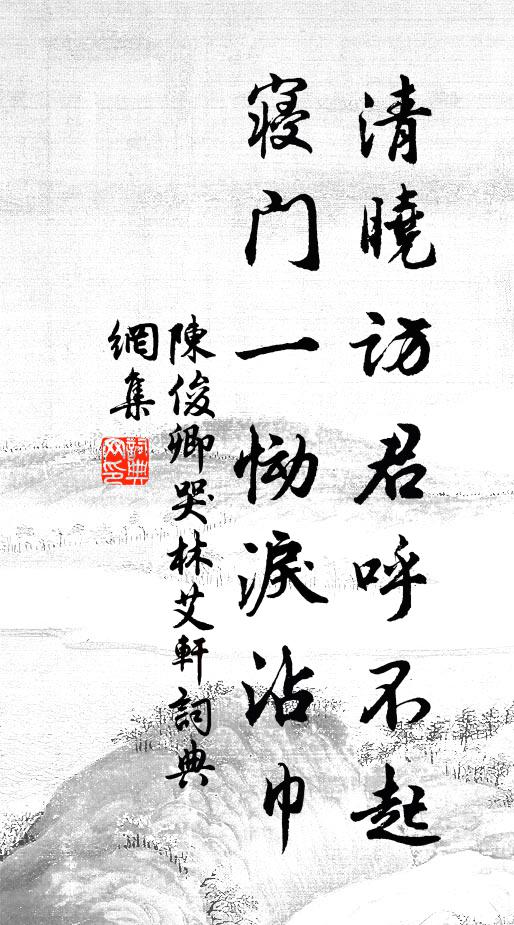 清曉訪君呼不起
寢門一慟淚沾巾
陳俊卿哭林艾軒詞典
網集
詞典
网印